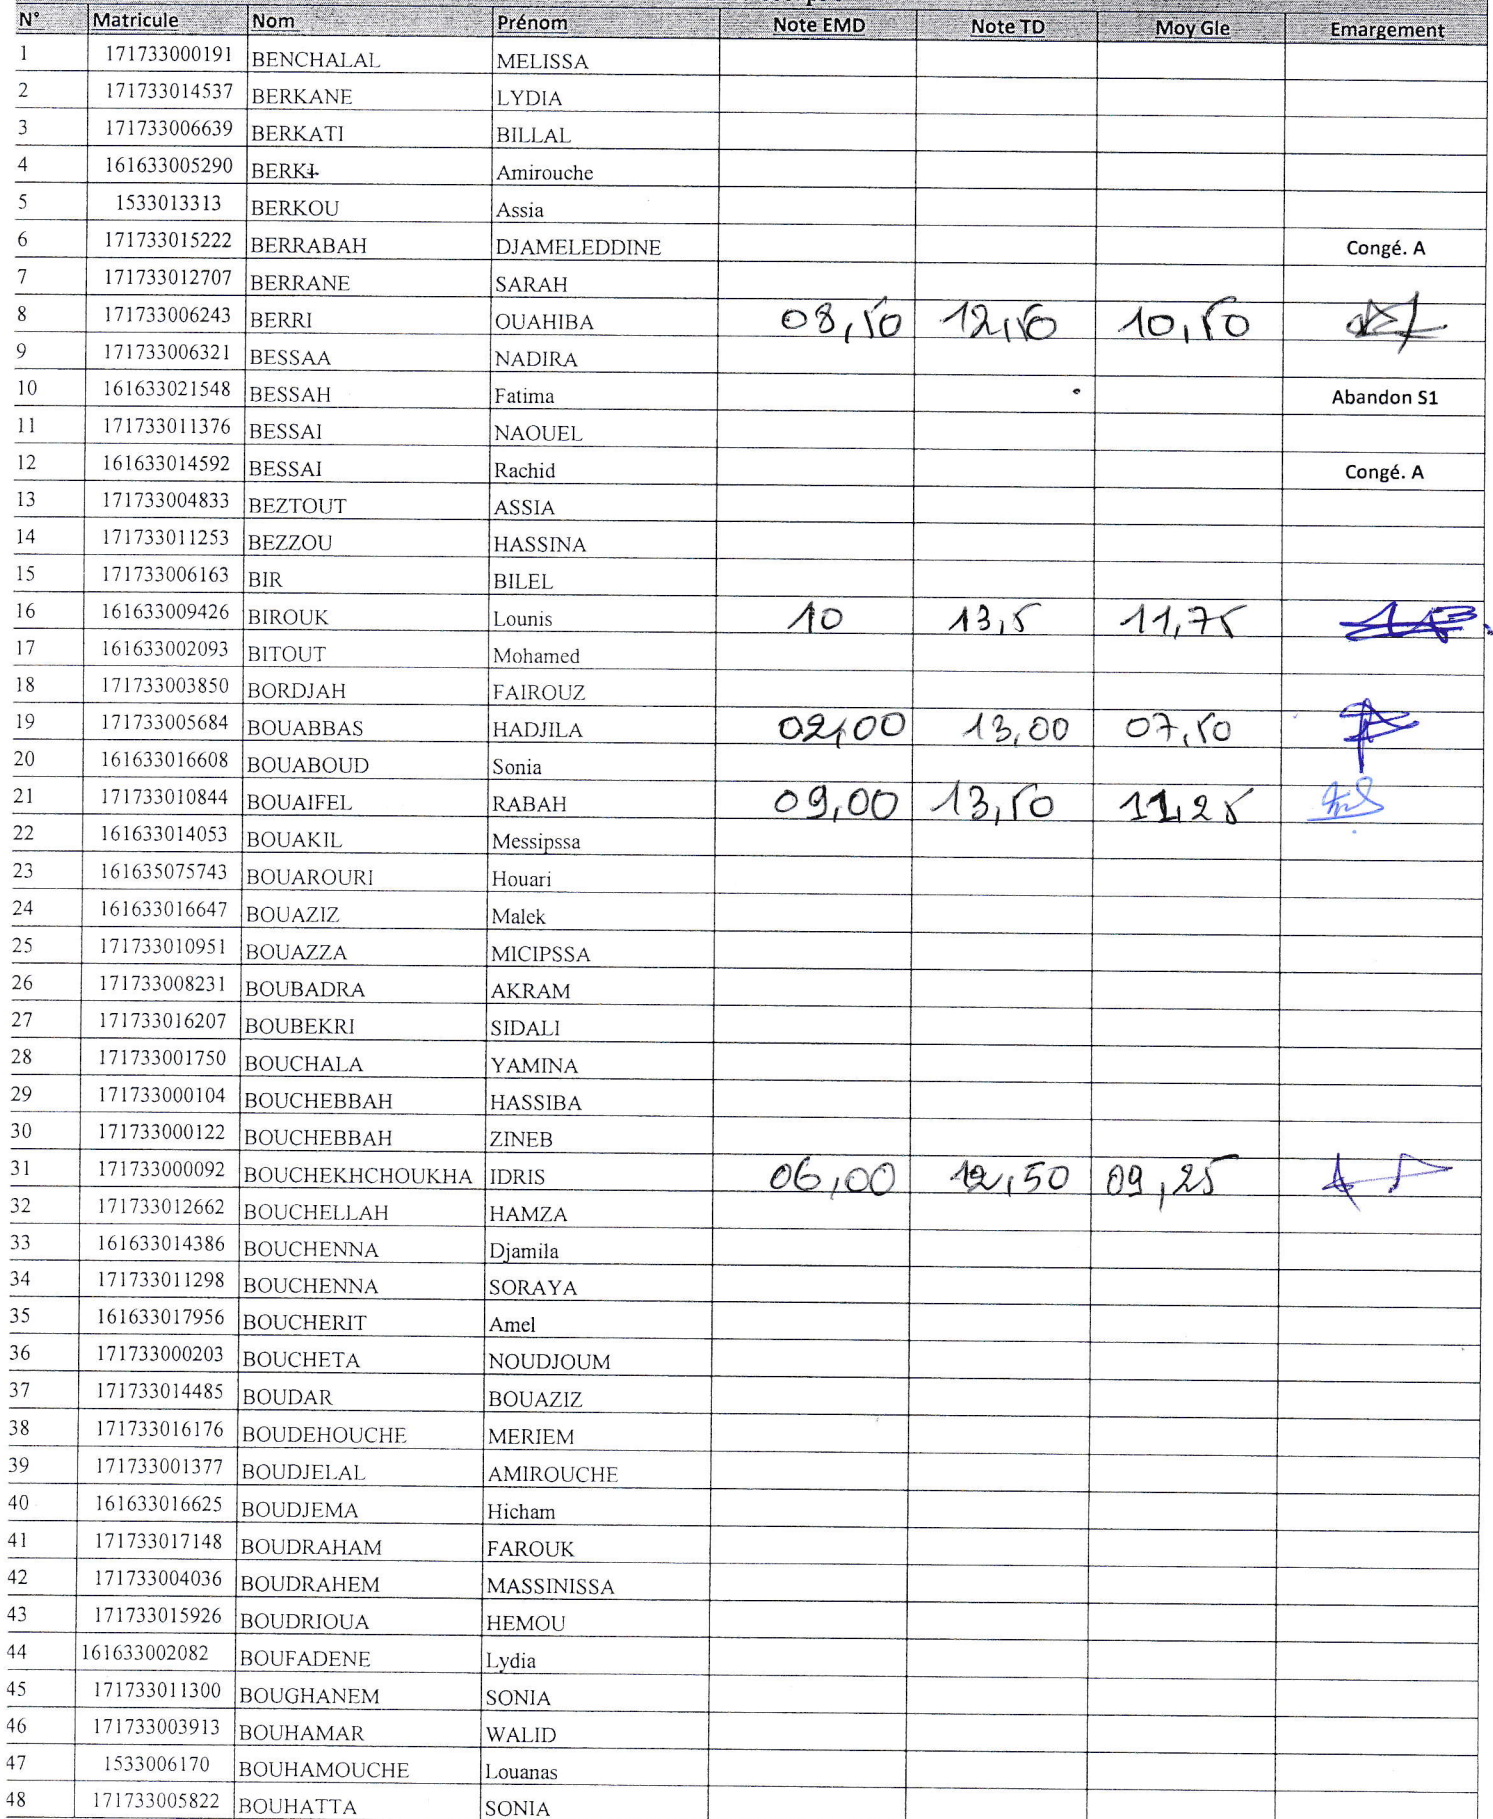 N° Matricule Nom Prénom Note EMD Note TD Moy Gle Emargement
1 171733000191 BENCHALAL MELISSA
2 171733014537 BERKANE LYDIA
3 171733006639 BERKATI BILLAL
4 161633005290 BERKI Amirouche
5 1533013313 BERKOU Assia
6 171733015222 BERRABAH DJAMELEDDINE Congé. A
7 171733012707 BERRANE SARAH
8 171733006243 BERRI OUAHIBA 08,50 12,50 10,50
9 171733006321 BESSAA NADIRA
10 161633021548 BESSAH Fatima Abandon S1
11 171733011376 BESSAI NAOUEL
12 161633014592 BESSAI Rachid Congé. A
13 171733004833 BEZTOUT ASSIA
14 171733011253 BEZZOU HASSINA
15 171733006163 BIR BILEL
16 161633009426 BIROUK Lounis 10 13,5 11,75
17 161633002093 BITOUT Mohamed
18 171733003850 BORDJAH FAIROUZ
19 171733005684 BOUABBAS HADJILA 02,00 13,00 07,50
20 161633016608 BOUABOUD Sonia
21 171733010844 BOUAIFEL RABAH 09,00 13,50 11,25
22 161633014053 BOUAKIL Messipssa
23 161635075743 BOUAROURI Houari
24 161633016647 BOUAZIZ Malek
25 171733010951 BOUAZZA MICIPSSA
26 171733008231 BOUBADRA AKRAM
27 171733016207 BOUBEKRI SIDALI
28 171733001750 BOUCHALA YAMINA
29 171733000104 BOUCHEBBAH HASSIBA
30 171733000122 BOUCHEBBAH ZINEB
31 171733000092 BOUCHEKHCHOUKHA IDRIS 06,00 12,50 09,25
32 171733012662 BOUCHELLAH HAMZA
33 161633014386 BOUCHENNA Djamila
34 171733011298 BOUCHENNA SORAYA
35 161633017956 BOUCHERIT Amel
36 171733000203 BOUCHETA NOUDJOUM
37 171733014485 BOUDAR BOUAZIZ
38 171733016176 BOUDEHOUCHE MERIEM
39 171733001377 BOUDJELAL AMIROUCHE
40 161633016625 BOUDJEMA Hicham
41 171733017148 BOUDRAHAM FAROUK
42 171733004036 BOUDRAHEM MASSINISSA
43 171733015926 BOUDRIOUA HEMOU
44 161633002082 BOUFADENE Lydia
45 171733011300 BOUGHANEM SONIA
46 171733003913 BOUHAMAR WALID
47 1533006170 BOUHAMOUCHE Louanas
48 171733005822 BOUHATTA SONIA